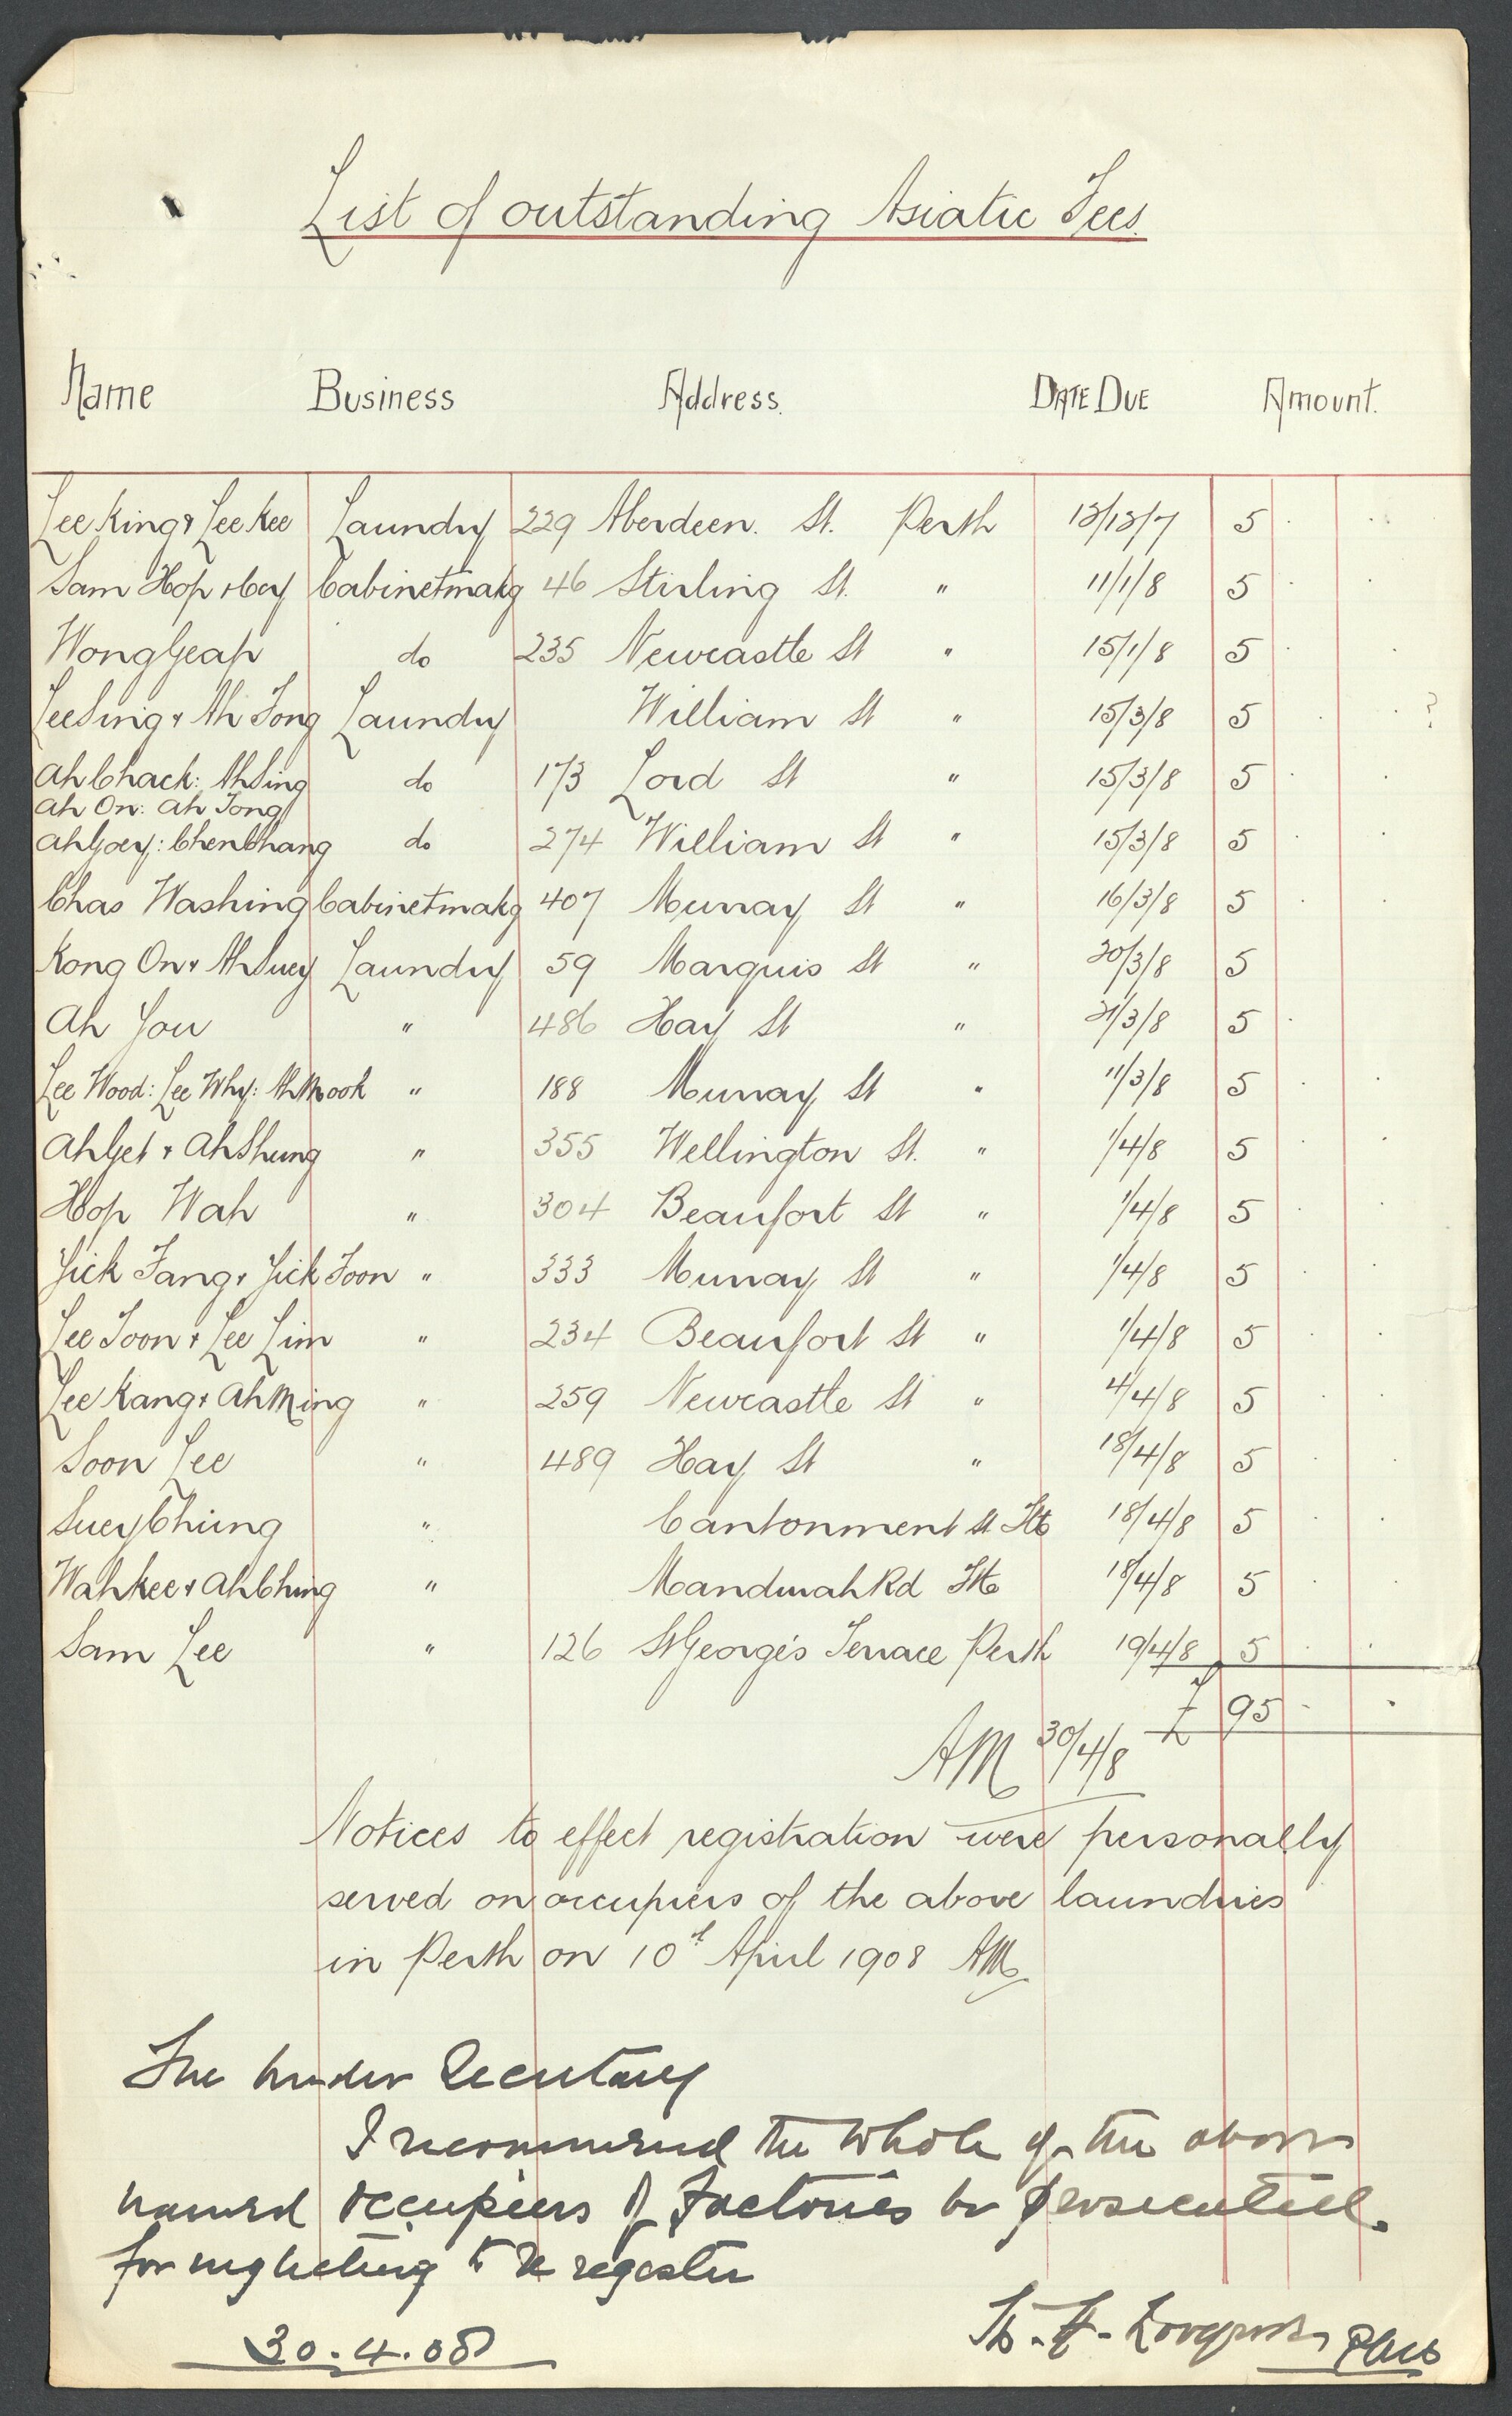 List of outstanding Asiatic Fees.
Name Business Address. DATE DUE Amount.
Lee King & Lee Kee Laundry 229 Aberdeen. St. Perth 13/13/7 5 . .
Sam Hop & Coy Cabinetmakg 46 Stirling St. " 11/1/8 5 . .
Wong Yeap do 235 Newcastle St " 15/1/8 5 . .
Lee Sing & Ah Tong Laundry William St " 15/3/8 5 . . ?
Ah Chack: Ah Sing do 173 Lord St " 15/3/8 5 . .
Ah On: Ah Tong
Ah Goey: Chen Chang do 274 William St " 15/3/8 5 . .
Chas Washing Cabinetmakg 407 Murray St " 16/3/8 5 . .
Kong On & Ah Suey Laundry 59 Marquis St " 20/3/8 5
Ah You " 486 Hay St " 21/3/8 5 .
Lee Wood: Lee Why: Ah Mook " 188 Murray St " 11/3/8 5 . .
Ah Get & Ah Shung " 355 Wellington St. " 1/4/8 5 . .
Hop Wah " 304 Beaufort St " 1/4/8 5 . .
Yick Fang & Yick Foon " 333 Murray St " 1/4/8 5 . .
Lee Toon & Lee Lim " 234 Beaufort St " 1/4/8 5 . .
Lee Kang & Ah Ming " 259 Newcastle St " 4/4/8 5 . .
Soon Lee " 489 Hay St " 18/4/8 5 . .
Suey Chung " Cantonment St Ftle 18/4/8 5 . .
Wah Kee & Ah Ching " Mandurah Rd Ftle 18/4/8 5 . .
Sam Lee " 126 St George's Terrace Perth 19/4/8 5 . .
£ 95 . .
AM 30/4/8
Notices to effect registration were personally
served on occupiers of the above laundries
in Perth on 10th April 1908 AM
The Under Secretary
I recommend the whole of the above
named occupiers of Factories be prosecuted.
for neglecting to re register
30.4.08